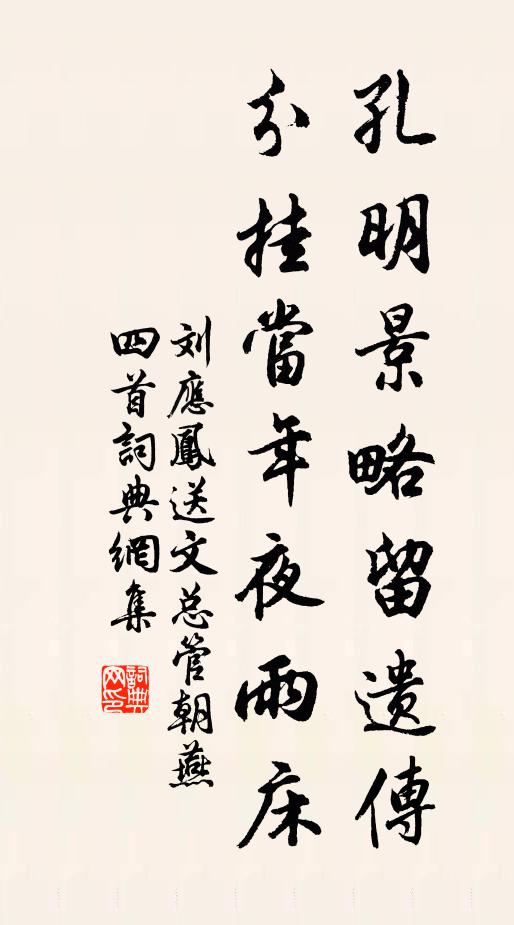 孔明景略留遗傳
分挂當年夜雨床
刘應鳳送文总管朝燕
四首詞典網集
詞典网印